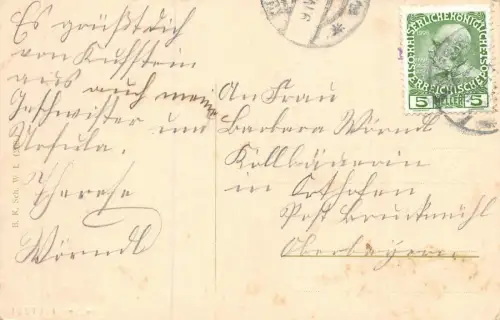 Es grüßt dich
von Kufstein
aus auch meine
Geschwister und
Ursula.
Therese
Wörndl
An Frau
Barbara Wörndl
Kollbäuerin
in
Post Bruckmühl
Oberbayern.
KAISERLICHE KÖNIGLICHE ÖSTERREICHISCHE POST
5 HELLER 5
B. K. Sch. W. I.